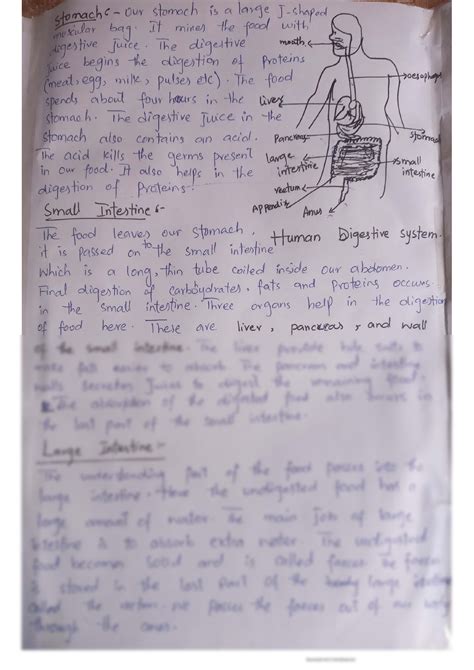 Stomach :- Our stomach is a large J-shaped
muscular bag. It mixes the food with
digestive juice. The digestive
juice begins the digestion of Proteins
(meat, egg, milk, pulses etc). The food
spends about four hours in the
stomach. The digestive juice in the
stomach also contains an acid.
The acid kills the germs present
in our food. It also helps in the
digestion of Proteins.
mouth
oesophagus
liver
Pancreas
Stomach
large
intestine
small
intestine
rectum
Appendix
Anus
Human Digestive system.
Small Intestine :-
The food leaves our stomach,
it is passed on to the small intestine
which is a long, thin tube coiled inside our abdomen.
Final digestion of carboydrates, fats and Proteins occurs
in the small intestine. Three organs help in the digestion
of food here. These are liver, pancreas, and wall
of the small intestine. The liver provide bile
fats easier to absorb. The pancreas and intestine
walls secretes juices to digest the remaining food.
The absorption of the digested food also occurs in
the last part of the small intestine.
Large Intestine :-
The part of the food passes into the
large intestine. Here the undigested food has a
large amount of water. The main job of large
intestine is to absorb extra water. The undigested
food becomes solid and is called faeces. The faeces
is stored in the last part of the large
called the rectum. we passes the faeces out of our body
through the